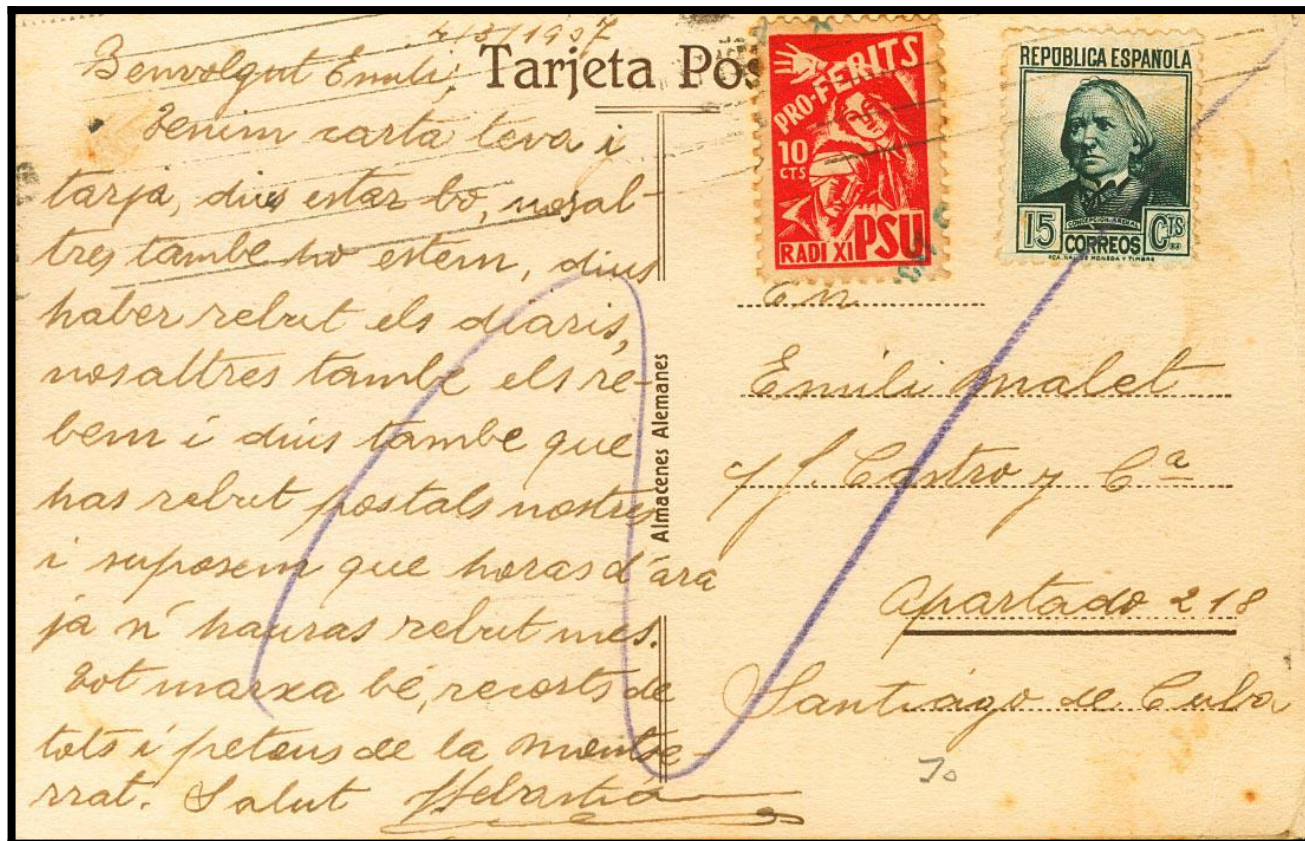 4/3/1937
Benvolgut Emili;
Tenim carta teva i
tarja, dius estar bo, nosal-
tres tambe ho estem, dius
haber rebut els diaris,
nosaltres tambe els re-
bem i dius tambe que
has rebut postals nostres
i suposem que horas d'ara
ja n'hauras rebut mes.
Tot marxa bé, recorts de
tots i petons de la Montse-
rrat. Salut Sebastià
Tarjeta Pos
Almacenes Alemanes
PRO-FERITS
10
CTS
RADI XI PSU
REPÚBLICA ESPAÑOLA
CONCEPCIÓN ARENAL
15 CORREOS CTS
FCA. NAL. DE MONEDA Y TIMBRE
En
Emili Malet
J. Castro y Cª
Apartado 218
Santiago de Cuba